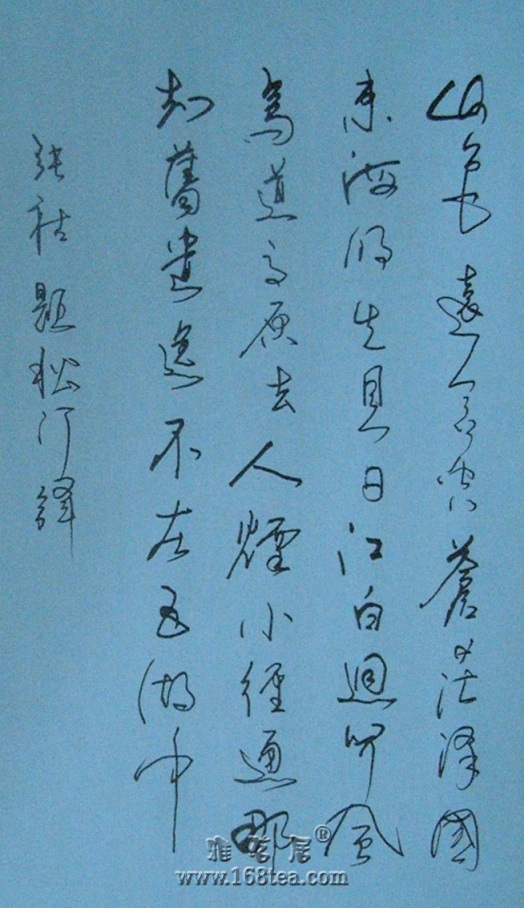 山色遠含空蒼茫澤國
東海明先見日江白迥聞風
鳥道高原去人煙小徑通那
知舊遺逸不在五湖中
張祜題松汀驛
雅茗居®
www.168tea.com